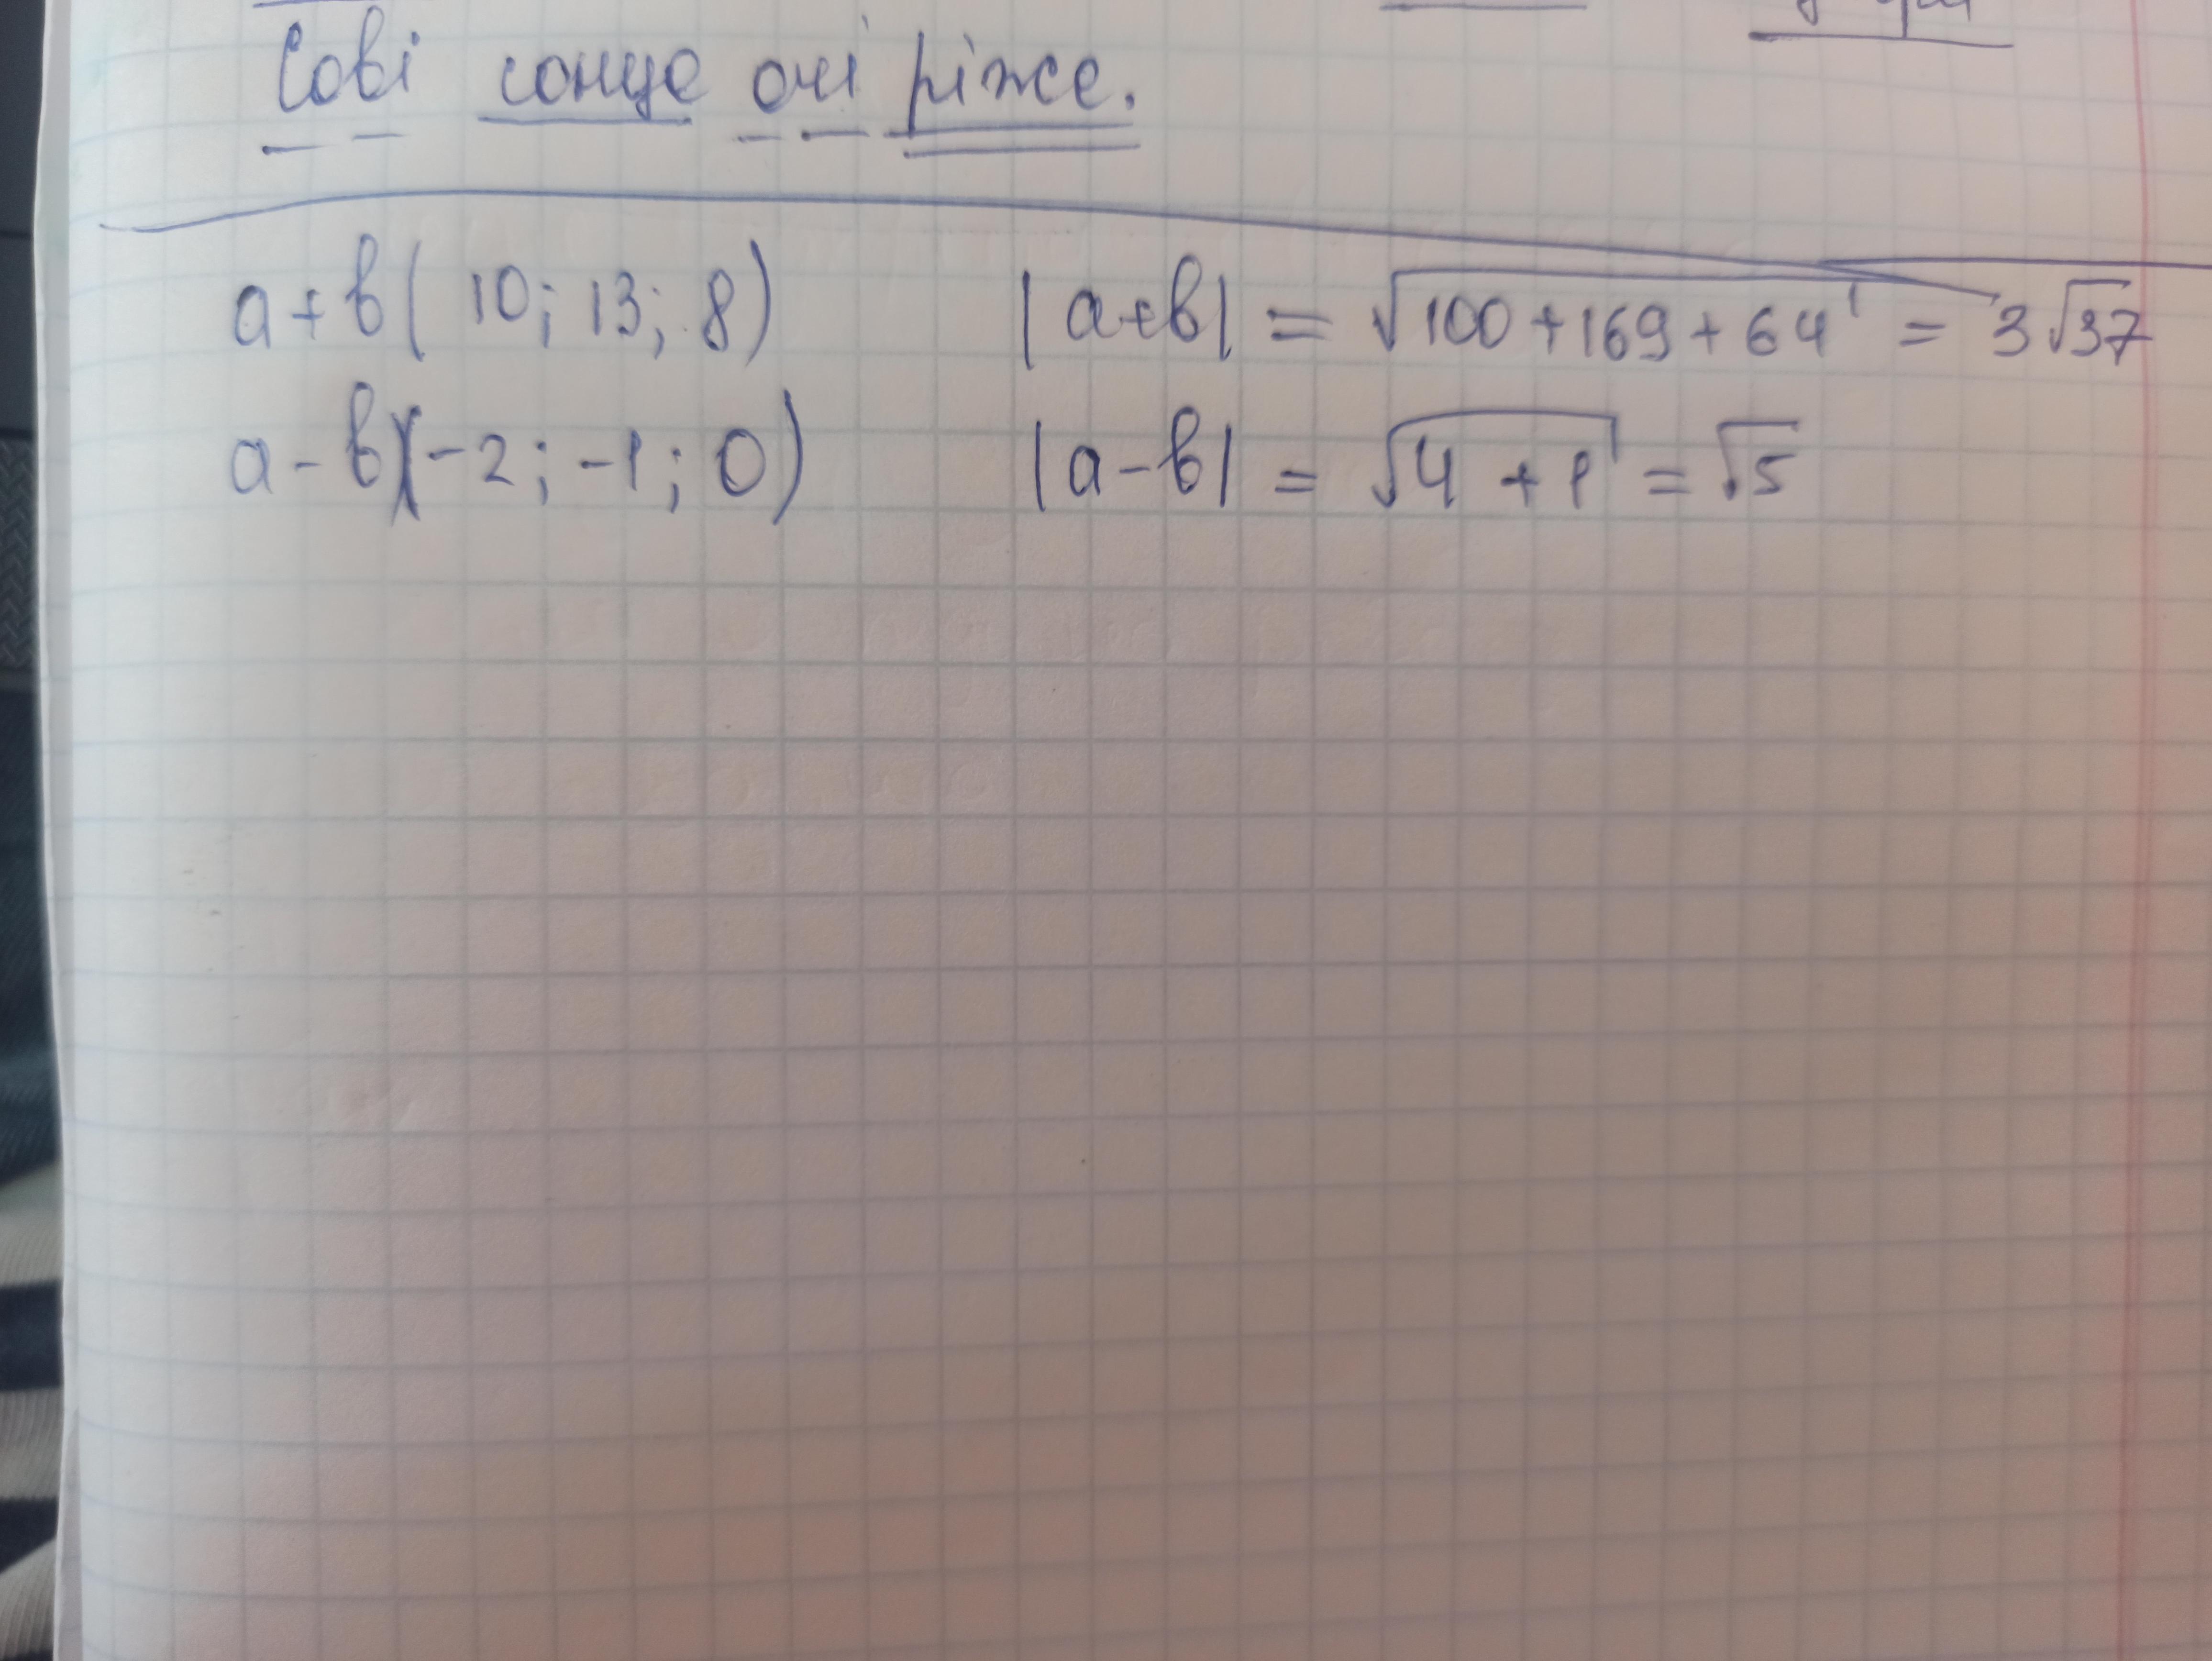 Сові сонце очі ріже.
a+b( 10; 13; 8) |a+b| = √100+169+64 = 3√37
a-b(-2; -1; 0) |a-b| = √4+1 = √5